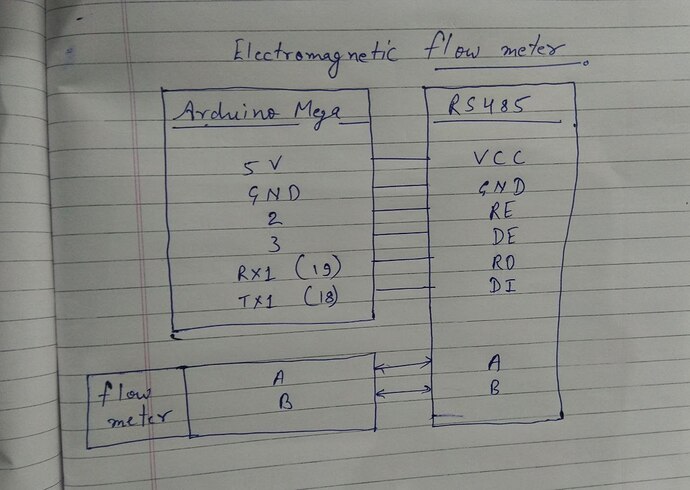 Electromagnetic flow meter.
Arduino Mega
5V
GND
2
3
RX1 (19)
TX1 (18)
RS485
VCC
GND
RE
DE
RO
DI
A
B
flow
meter
A
B